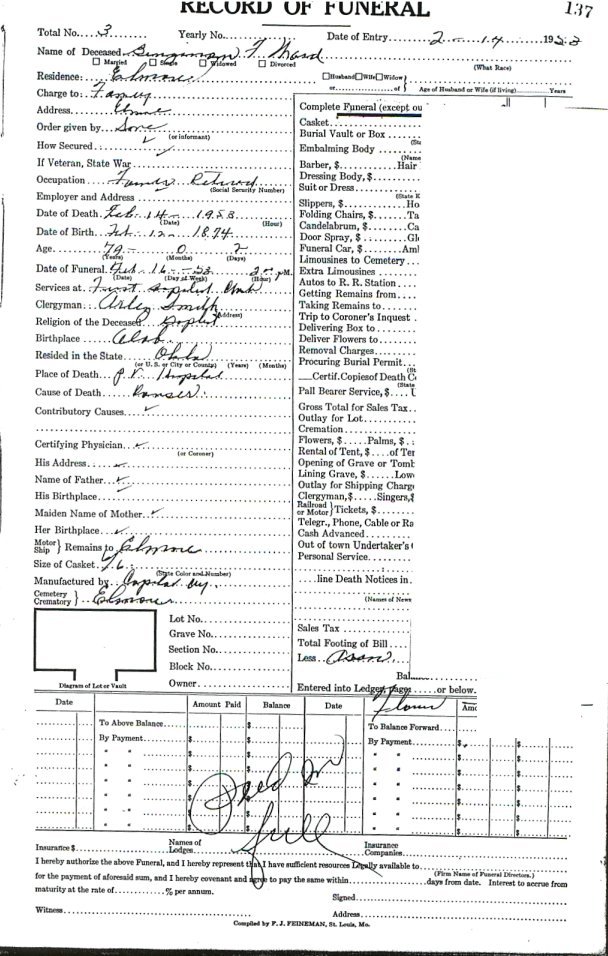 RECORD OF FUNERAL
137
Total No. 3 Yearly No. Date of Entry 2 - 14 - 1953
Name of Deceased F Ward
Married Single Widowed Divorced (What Race)
Residence: Elmore Husband Wife Widow
or of Age of Husband or Wife (if living) Years
Charge to: Family
Address
Order given by Sons
(or informant)
How Secured
If Veteran, State War
Occupation Farmer Retired
(Social Security Number)
Employer and Address
Date of Death Feb. 14 - 1953
(Date) (Hour)
Date of Birth Feb. 12 - 1874
Age 79 - 0 2
(Years) (Months) (Days)
Date of Funeral Feb 16 - 53 2 PM.
(Date) (Day of Week) (Hour)
Services at First Baptist Church
Clergyman Smith
(Address)
Religion of the Deceased Baptist
Birthplace Alab.
Resided in the State Okla
(or U. S. or City or County) (Years) (Months)
Place of Death P. V. Hospital
Cause of Death Canser
Contributory Causes
Certifying Physician
(or Coroner)
His Address
Name of Father
His Birthplace
Maiden Name of Mother
Her Birthplace
Motor Ship } Remains to Elmore
Size of Casket
(State Color and Number)
Manufactured by Capital
Cemetery Crematory } Elmore
Lot No.
Grave No.
Section No.
Block No.
Owner
Diagram of Lot or Vault
Complete Funeral (except ou
Casket
Burial Vault or Box
(St
Embalming Body
(Name
Barber, $ Hair
Dressing Body, $
Suit or Dress
(State K
Slippers, $ Ho
Folding Chairs, $ Ta
Candelabrum, $ Ca
Door Spray, $ Gl
Funeral Car, $ Aml
Limousines to Cemetery
Extra Limousines
Autos to R. R. Station
Getting Remains from
Taking Remains to
Trip to Coroner's Inquest
Delivering Box to
Deliver Flowers to
Removal Charges
Procuring Burial Permit
(St
Certif. Copies of Death C
(State
Pall Bearer Service, $
Gross Total for Sales Tax
Outlay for Lot
Cremation
Flowers, $ Palms, $
Rental of Tent, $ of Ter
Opening of Grave or Tomb
Lining Grave, $ Low
Outlay for Shipping Charg
Clergyman, $ Singers, $
Railroad or Motor } Tickets, $
Telegr., Phone, Cable or Ra
Cash Advanced
Out of town Undertaker's
Personal Service
line Death Notices in
(Names of News
Sales Tax
Total Footing of Bill
Less
Bal
Entered into Ledger, pages or below.
Date Amount Paid Balance Date Amc
To Above Balance $ To Balance Forward
By Payment $ By Payment $ $
Paid In
full
Insurance $ Names of Lodges Insurance Companies
I hereby authorize the above Funeral, and I hereby represent that I have sufficient resources Legally available to
(Firm Name of Funeral Directors.)
for the payment of aforesaid sum, and I hereby covenant and agree to pay the same within days from date. Interest to accrue from
maturity at the rate of % per annum.
Signed
Witness Address
Compiled by F. J. FEINEMAN, St. Louis, Mo.